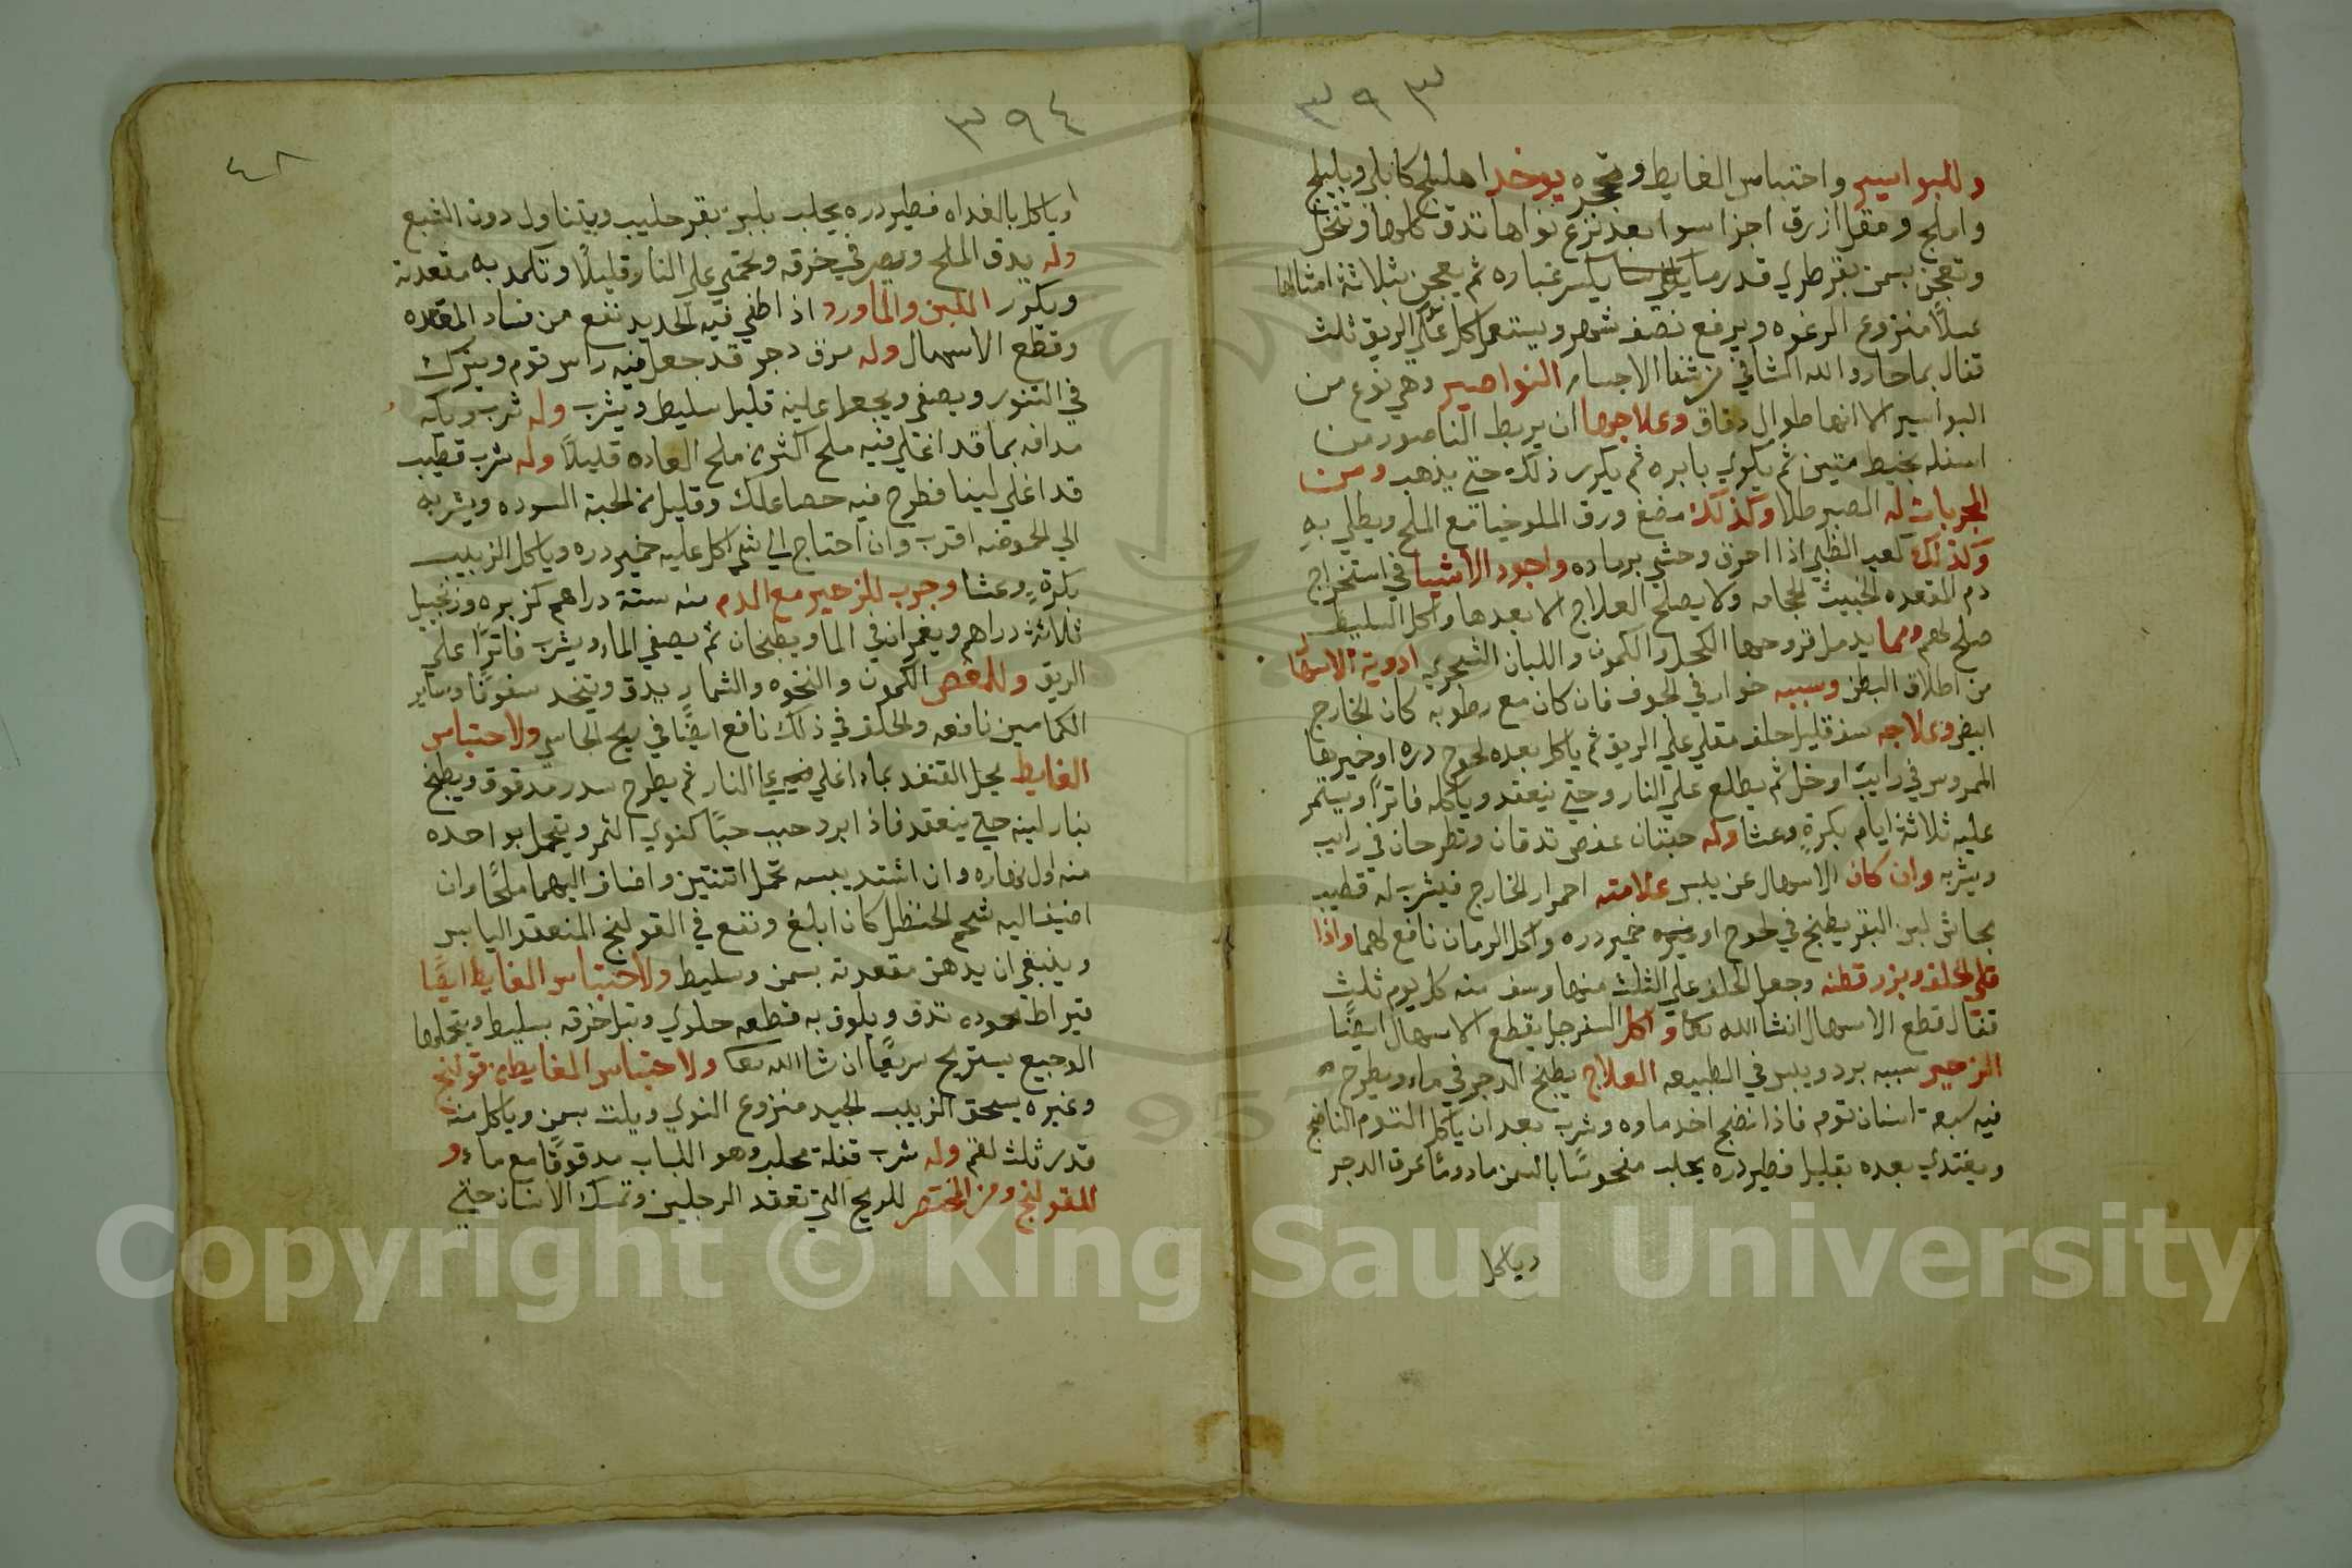 ٣٩٣
وللبواسير واحتباس الغايط وتحجره يوخذ اهليلج كابلي وبليلج
واملج ومقل ازرق اجزا سوا بعد نزع نواها تدق كلها وتنخل
وتعجن بسمن بقر طري قدر ما يكسر غباره ثم يعجن بثلاثة امثالها
عسلا منزوع الرغوه ويرفع نصف شهر ويستعمل كل على الريق ثلث
قفال بماحار والله الشافي من شفا الاجسام النواصير وهي نوع من
البواسير الا انها طوال دقاق وعلاجها ان يربط الناصور من
اسفله بخيط متين ثم يكوي بابره ثم يكرر ذلك حتى يذهب ومن
المجربات له الصبر طلا وكذلك مضغ ورق الملوخيا مع الملح ويطلي به
وكذلك كعب الظبي اذا احرق وحشي برماده واجود الاشيا في استخراج
دم المقعده الخبيث الحجامه ولا يصلح العلاج الا بعدها واكل السليط
صلح لهم ومما يدمل قروحها الكحل والكمون واللبان الشجري ادوية الاسهال
من اطلاق البطن وسببه خوار في الجوف فان كان مع رطوبه كان الخارج
ابيض وعلاجه سف قليل حلف مقلي على الريق ثم ياكل بعده لحوح دره او خميرها
الممروس في رايب او خل ثم يطلع على النار وحتى ينعقد وياكله فاترا ويستمر
عليه ثلاثة ايام بكرة وعشا وله حبتان عفص تدقان وتطرحان في رايب
ويشربه وان كان الاسهال عن يبس علامته احمرار الخارج فيشرب له قطيب
بحاش لبن البقر يطبخ في لحوح او غيره خمير دره واكل الرمان نافع لهما واذا
قلي الحلف وبزر قطنه وجعل الحلف على الثلث منها وسف منه كل يوم ثلث
قفال قطع الاسهال انشا الله تعا واكل السفرجل يقطع الاسهال ايضا
الزحير سببه برد ويبس في الطبيعه العلاج يطبخ الدجر في ماء ويطرح
فيه سبعة اسنان ثوم فاذا نضج اخذ ماوه وشرب بعد ان ياكل الثوم الناضج
ويغتدي بعده بقليل فطير دره بحلب منحوسا بالسمن مادوما بمرق الدجر
وياكل
٣٩٤
٤٨
اوياكل بالغداه فطير دره بحلب بلبن بقر حليب ويتناول دون الشبع
وله يدق الملح ويصر في خرقه ويحمى على النار قليلا وتكمد به مقعدته
ويكون اللبن والماورد اذا اطفي فيه الحديد نفع من فساد المقعده
وقطع الاسهال وله مرق دجر قد جعل فيه راس ثوم ويترك
في التنور ويصفي ويجعل عليه قليل سليط ويشرب وله شرب ويكه
مدافه بما قد اغلي فيه ملح اكثر من ملح العاده قليلا وله شرب قطيب
قد اغلي لينا فطرح فيه حصا علك وقليل من الحبة السوده ويشربه
الي الحموضه اقرب وان احتاج الي شي اكل عليه خمير دره وياكل الزبيب
بكرة وعشا وجرب للزحير مع الدم منه ستة دراهم كزبره وزنجبيل
ثلاثة دراهم ويغمران في الما ويطبخان ثم يصفي الماء ويشرب فاترا على
الريق وللمغص الكمون والنخوه والشمار يدق ويتخد سفوفا وساير
الكمامين نافعه والحلف في ذلك نافع ايضا في ريح الجاسي ولاحتباس
الغايط يحل القند بماء اغلي على النار ثم يطرح سدر مدقوق ويطبخ
بنار لينه حتى ينعقد فاذا ابرد حبب حبا كنوي التمر ويتحمل بواحده
منه اول نهاره وان اشتد يبسه تحمل اثنتين واضاف اليهما ملحا وان
اضيف اليه شحم الحنظل كان ابلغ ونفع في القولنج المنعقد اليابس
وينبغي ان يدهن مقعدته بسمن وسليط ولاحتباس الغايط ايضا
قيراط تدق ويلوق به قطعه حلوي وتبل خرقه بسليط ويتحملها
الوجيع يستريح سريعا ان شا الله تعا ولاحتباس الغايط من قولنج
وغيره يسحق الزبيب الجيد منزوع النوي ويلت بسمن وياكل منه
قدر ثلث لقم وله شرب قفلة محلب وهو اللباب مدقوقا مع ماء و
للقولنج ومن المختصر للريح التي تعقد الرجلين وتمسك الانسان حتى
Copyright © King Saud University